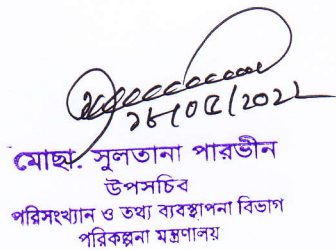 ১৮/০৫/২০২২
মোছা. সুলতানা পারভীন
উপসচিব
পরিসংখ্যান ও তথ্য ব্যবস্থাপনা বিভাগ
পরিকল্পনা মন্ত্রণালয়